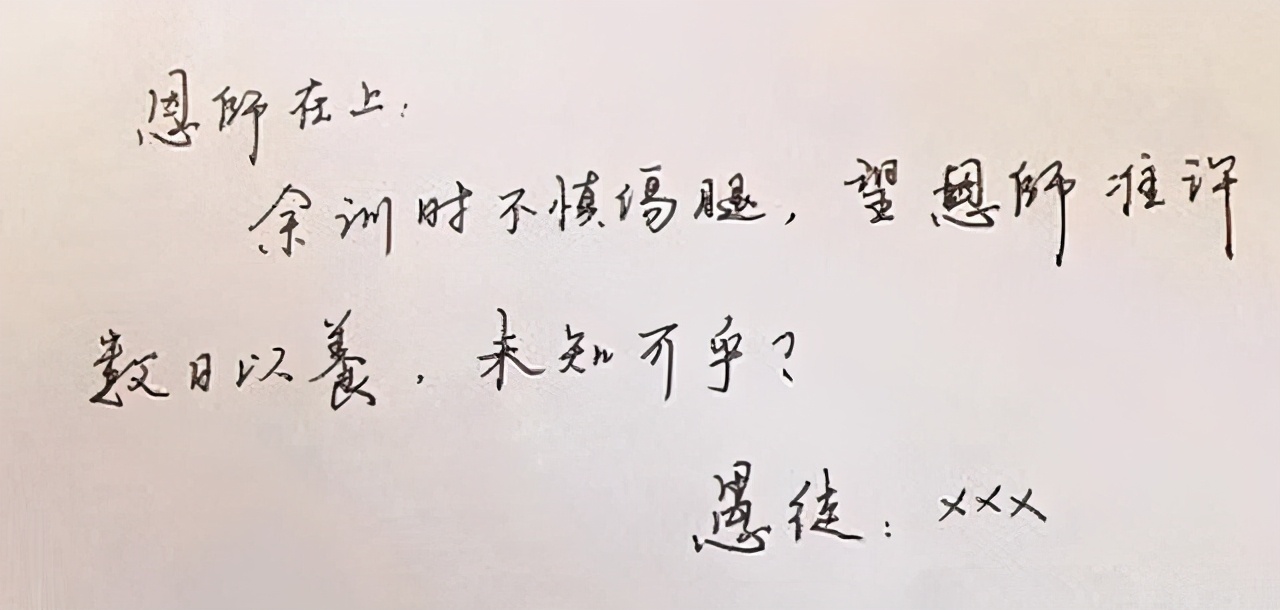 恩師在上:
余训时不慎伤腿,望恩師准许
数日以養,未知可乎?
愚徒:×××